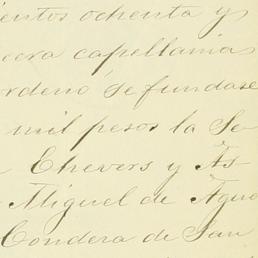 ientos ochenta y
cera capellania
ordenó se fundase
mil pesos la Se
Chevers y As-
Miguel de Agua
Condera de San